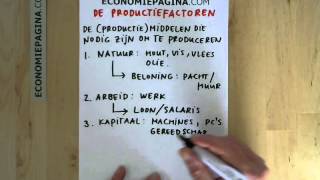 ECONOMIEPAGINA.COM
DE PRODUCTIEFACTOREN
DE (PRODUCTIE)MIDDELEN DIE
NODIG ZIJN OM TE PRODUCEREN
1. NATUUR: HOUT, VIS, VLEES
OLIE.
BELONING: PACHT/
HUUR
2. ARBEID: WERK
LOON/SALARIS
3. KAPITAAL: MACHINES, PC'S
GEREEDSCHAP
ECONOMIEPAGINA.COM